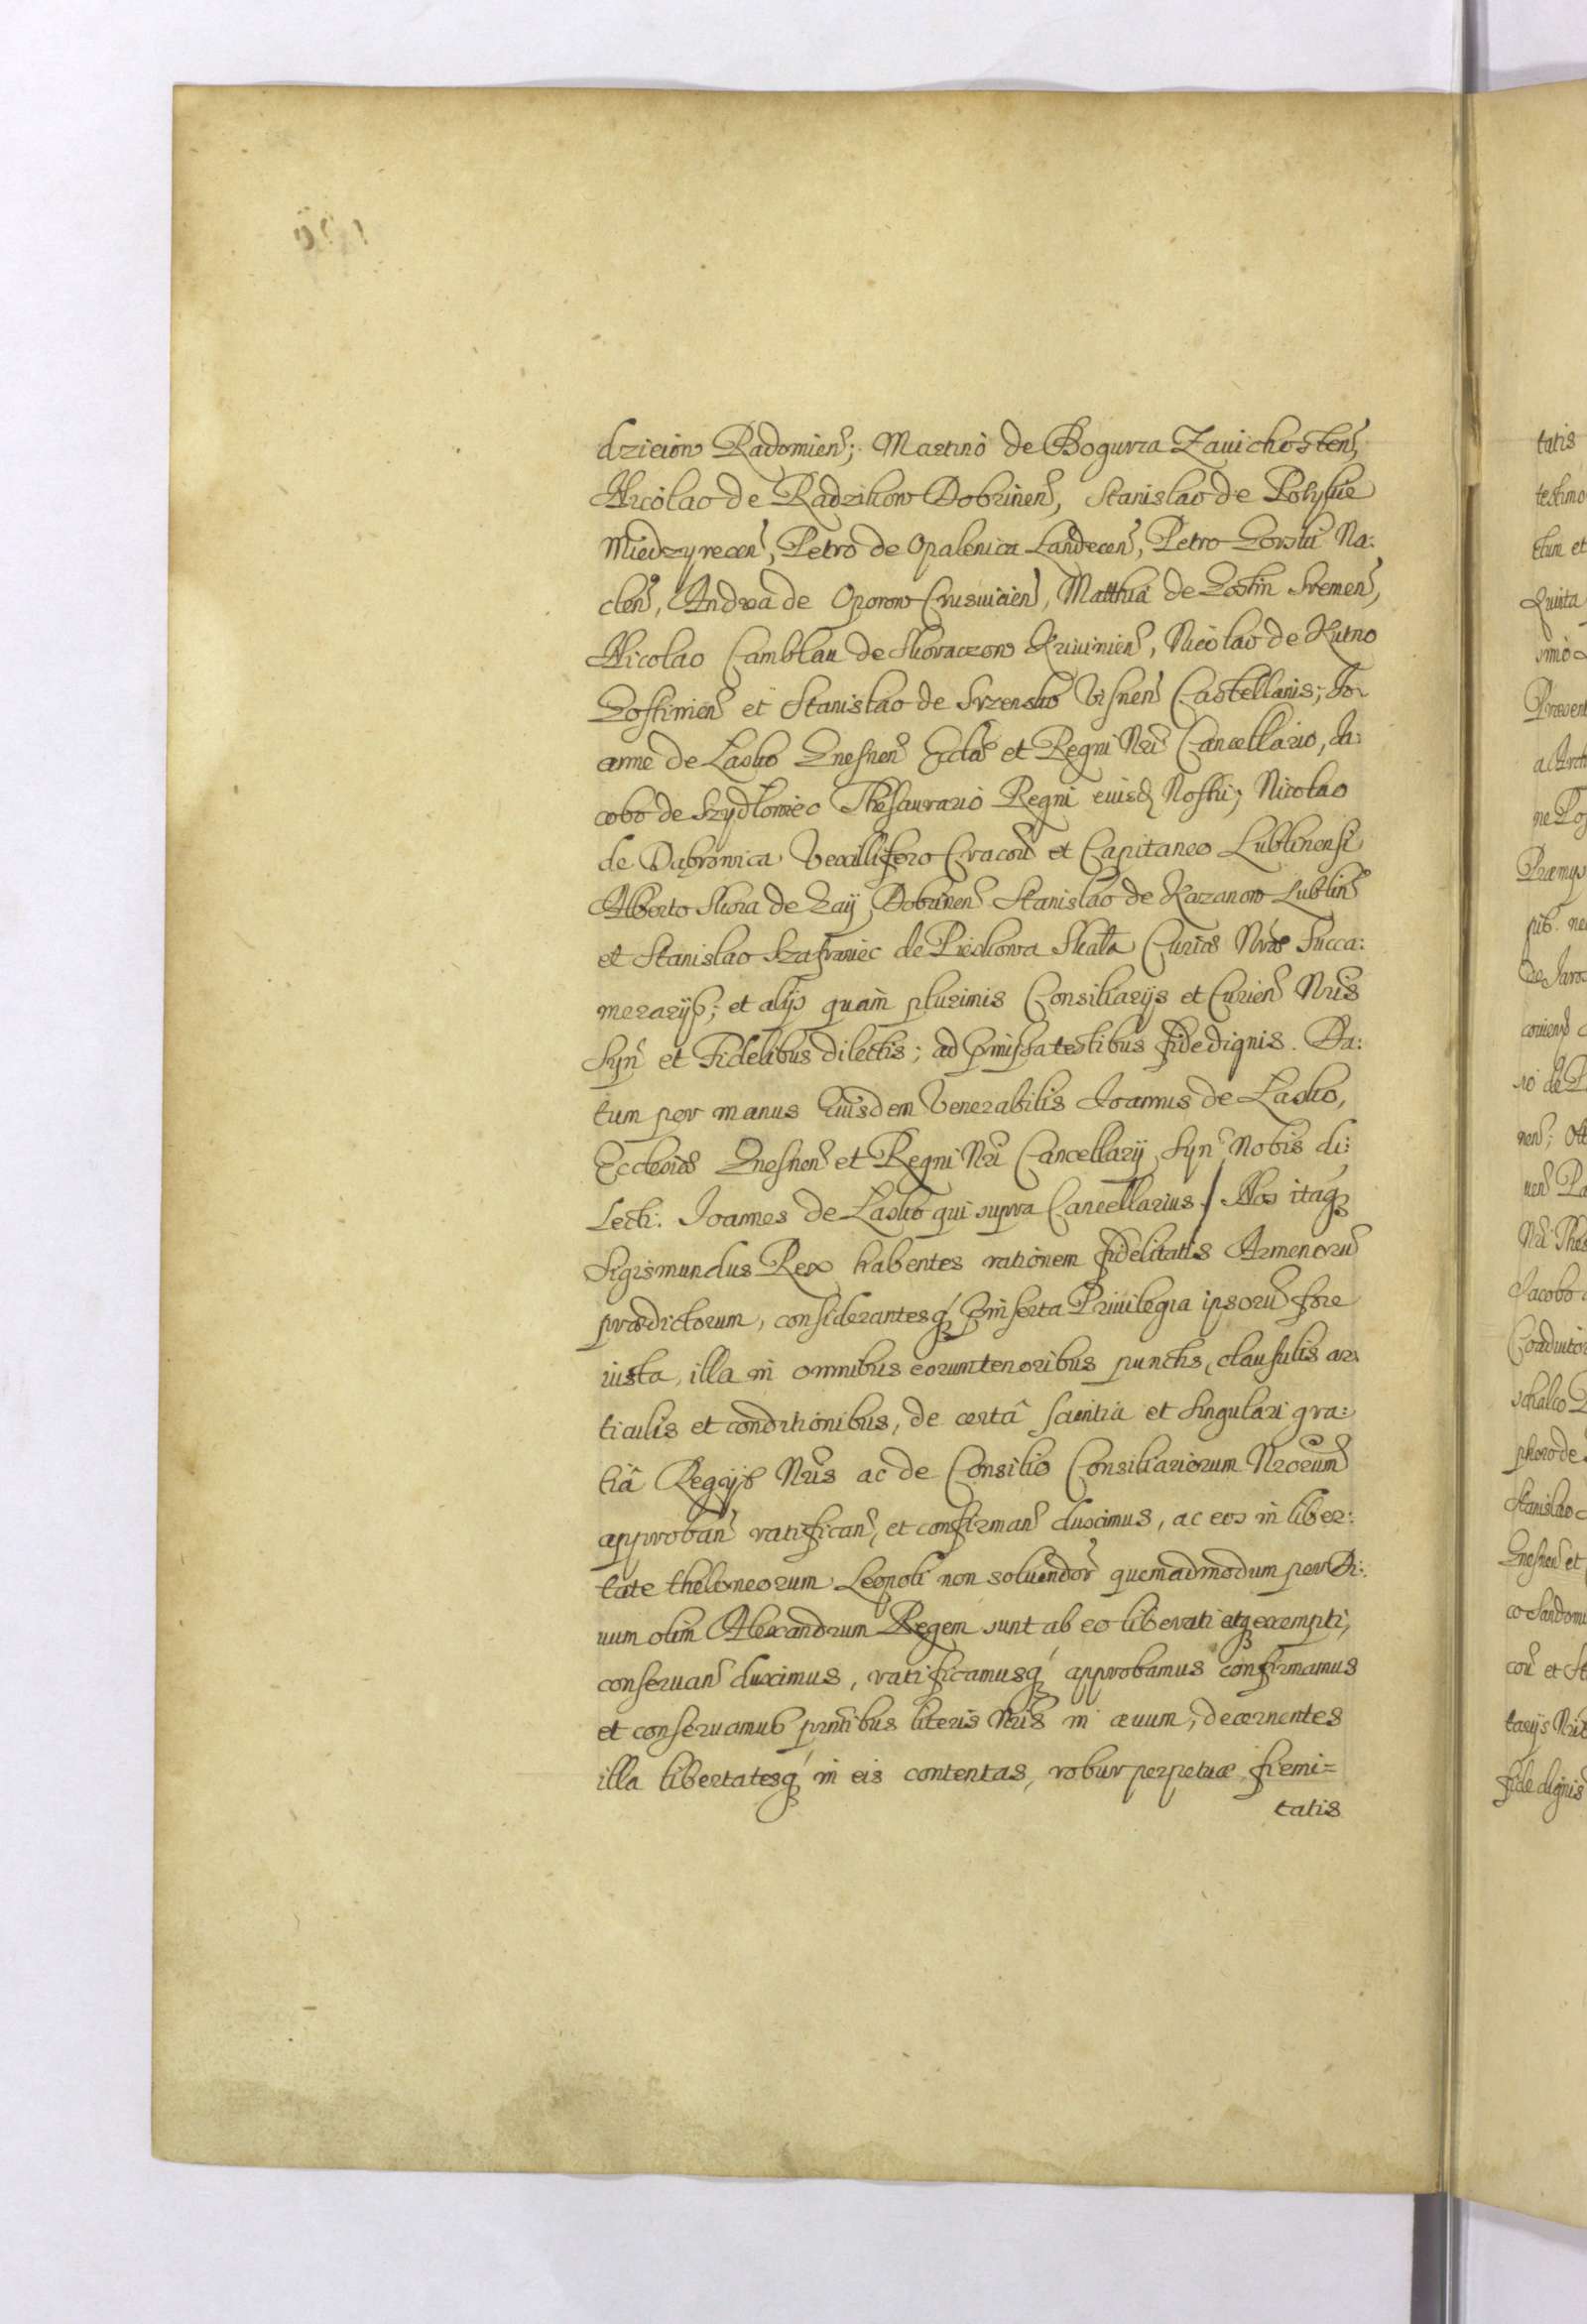 dzieiow Radomien; Martino de Bogurra Zauichosten,
Nicolao de Radzikow Dobrinen, Stanislao de Potylice
Miedzyrecen, Petro de Opalenica Landecen, Petro Gorski Na:
clen, Andrea de Oporow Crusuicien, Matthia de Gostin Sremen,
Nicolao Camblan de Skoraczow Kriuinien, Nicolao de Kutno
Gostinien et Stanislao de Srzensko Visnen Castellanis; Jo:
anne de Lasko Gnesnen Eccłae et Regni Nri Cancellario, Ja:
cobo de Szydłowiec Thesaurario Regni eiusd Nostri; Nicolao
de Dąbrowica Vexillifero Cracou et Capitaneo Lublinensi
Alberto Skora de Gaÿ Dobrinen Stanislao de Kazanow Lublin
et Stanislao Szafraniec de Pieskowa Skała Curiae Nrae Succa:
merarijs; et alijs quam plurimis Consiliarijs et Curien Nris
Syn et Fidelibus dilectis; ad pmissa testibus fide dignis. Da:
tum per manus Eiusdem Venerabilis Joannis de Lasko,
Ecclesiae Gnesnen et Regni Nri Cancellarij Syn Nobis di:
lecti. Joannes de Lasko qui supra Cancellarius / Nos itaq
Sigismundus Rex habentes rationem fidelitatis Armenoru
praedictorum, considerantesq pinserta Priuilegia ipsoru fore
iusta, illa in omnibus eorum tenoribus punctis, clausulis ar:
ticulis et conditionibus, de certâ scientia et singulari gra:
tiâ Regijs Nris ac de Consilio Consiliariorum Nrorum
approban ratifican, et confirman duximus, ac eos in liber:
tate theloneorum Leopoli non soluendor quemadmodum per Di:
uum olim Alexandrum Regem sunt ab eo liberati atq exempti,
conseruan duximus, ratificamusq approbamus confirmamus
et conseruamus prntibus literis Nris in aeuum, decernentes
illa libertatesq in eis contentas, robur perpetuae firmi=
tatis